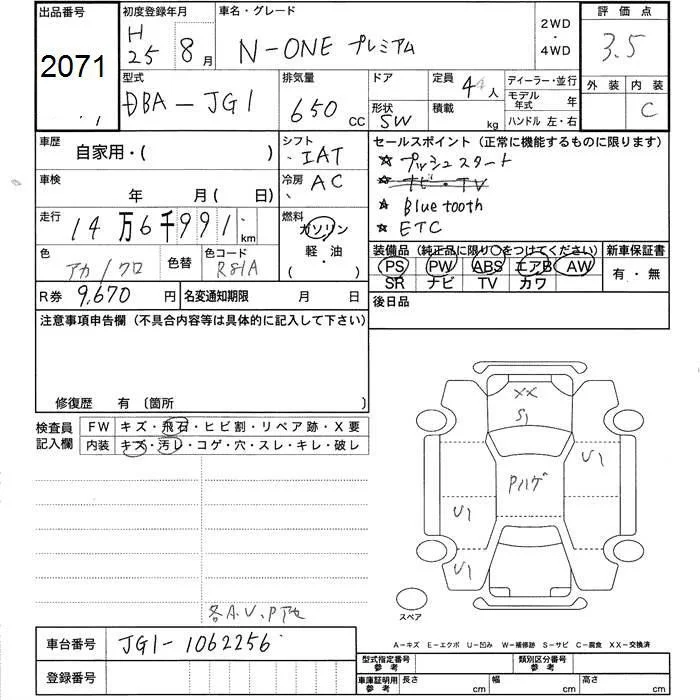 出品番号 初度登録年月 車名・グレード 2WD ・ 4WD 評価点
2071 H25 8月 N-ONE プレミアム 3.5
型式 排気量 ドア 定員 4人 ディーラー・並行 外装 内装
DBA-JG1 650cc 形状 SW 積載 kg モデル年式 年 ハンドル 左・右 C
車歴 自家用・( ) シフト IAT セールスポイント(正常に機能するものに限ります)
★ プッシュスタート
車検 年 月(日) 冷房 AC ★ ナビ・TV
★ Bluetooth
走行 14万6千991km 燃料 ガソリン ★ ETC
軽・油
( )
色 アカ/クロ 色替 色コード R81A 装備品(純正品に限り○をつけてください) 新車保証書
PS PW ABS エアB AW 有・無
R券 9,670円 名変通知期限 月 日 SR ナビ TV カワ
注意事項申告欄(不具合内容等は具体的に記入して下さい) 後日品
修復歴 有〔箇所 〕
検査員記入欄 FW キズ・飛石・ヒビ割・リペア跡・X要
内装 キズ・汚レ・コゲ・穴・スレ・キレ・破レ
XX
S1
U1
Pハゲ
U1
U1
各A.U.P
スペア
A-キズ E-エクボ U-凹み W-補修跡 S-サビ C-腐食 XX-交換済
車台番号 JG1-1062256 型式指定番号 参考 類別区分番号 参考
登録番号 車庫証明用 参考 長さ cm 幅 cm 高さ cm